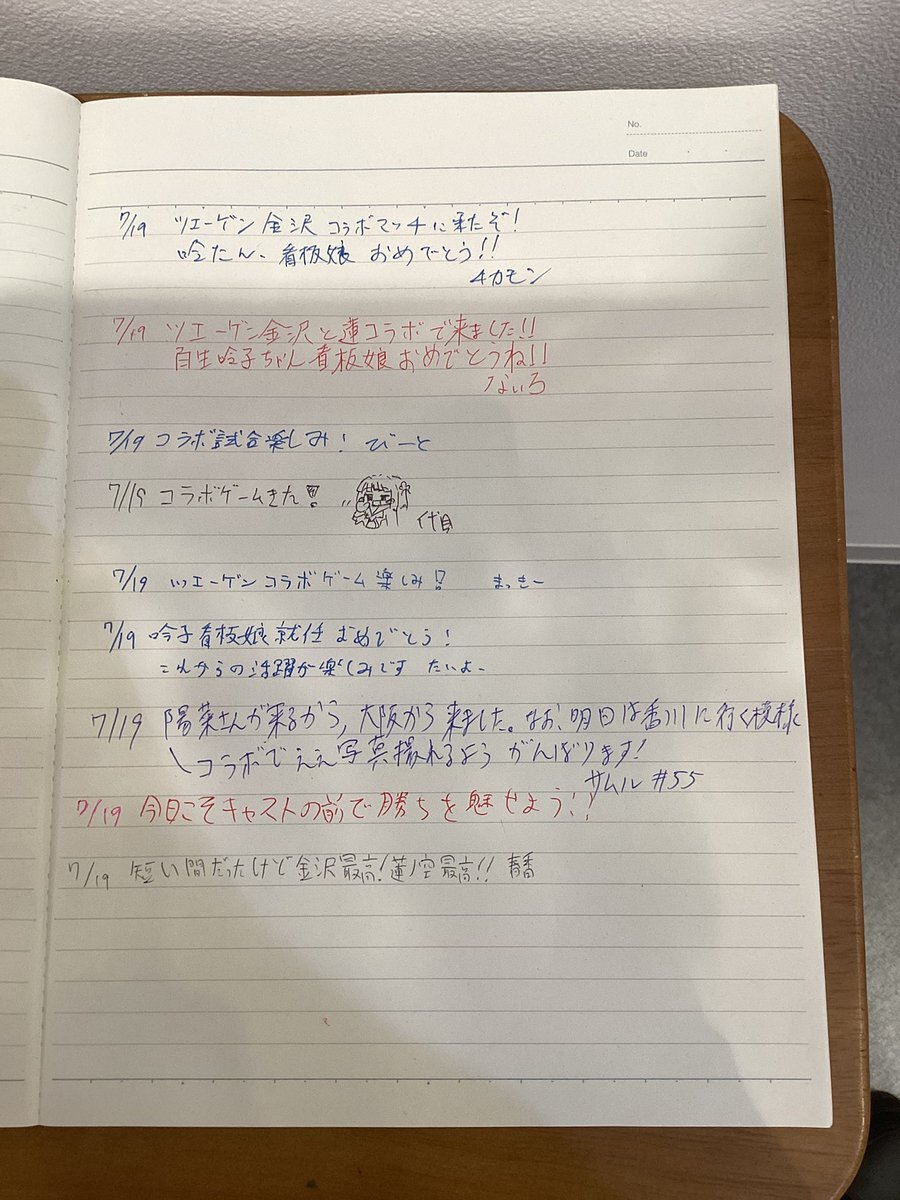 No.
Date
7/19 ツエーゲン金沢 コラボマッチに来たぞ!
吟たん、看板娘 おめでとう!!
4カモン
7/19 ツエーゲン金沢と蓮コラボで来ました!!
百生吟子ちゃん看板娘おめでとうね!!
ないろ
7/19 コラボ試合楽しみ! びーと
7/19 コラボゲームきた!!
7/19 ツエーゲンコラボゲーム楽しみ!? まっきー
7/19 吟子看板娘就任おめでとう!
これからの活躍が楽しみです たいよー
7/19 陽菜さんが来るから,大阪から来ました。なお、明日は香川に行く模様
コラボでええ写真撮れるよう がんばります!
サムル #55
7/19 今日こそキャストの前で勝ちを魅せよう!!
7/19 短い間だったけど金沢最高!蓮ノ空最高!!